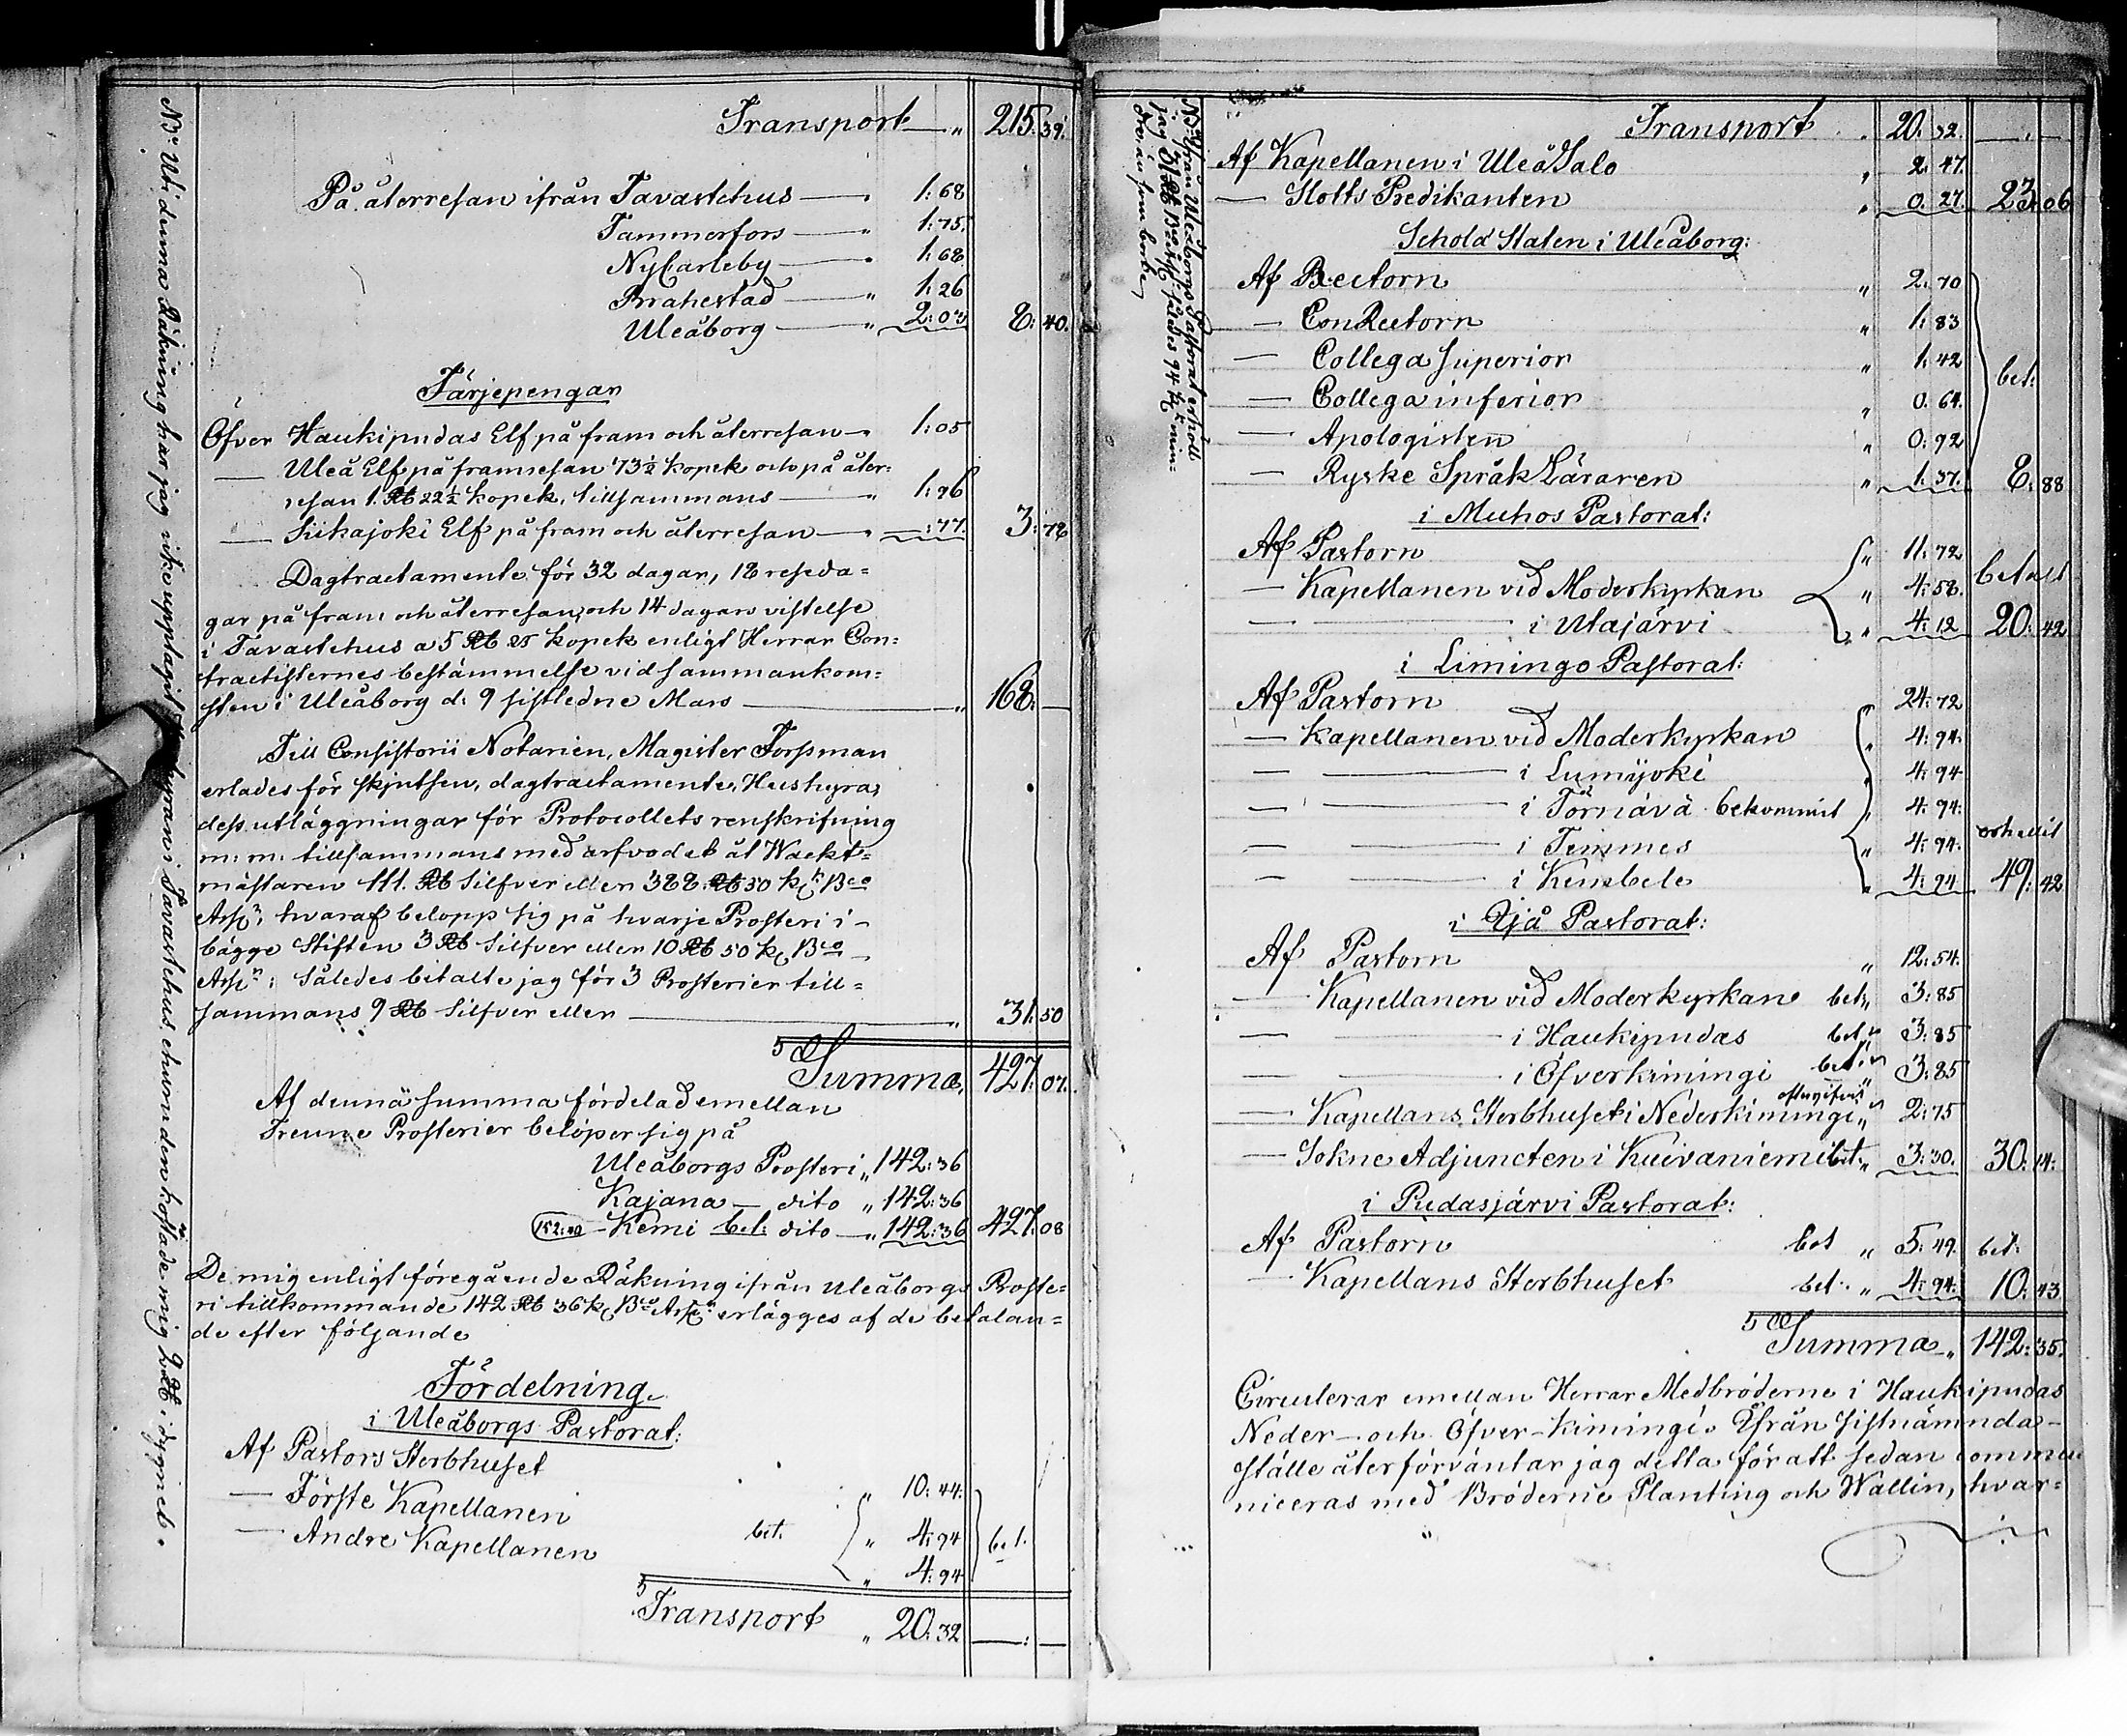 Transport — " 215. 39.
På återresan ifrån Tavastehus — " 1:68
Tammerfors — " 1:75.
NyCarleby — " 1:68
Brahestad — " 1:26
Uleåborg — " 2:03 8: 40.
Färjepengar
Öfver Haukipudas Elf på fram och återresan — " 1:05
— Uleå Elf på framresan 73½ kopek och på åter:
resan 1. Rb 22½ kopek, tillsammans — " 1:96
— Siikajoki Elf på fram och återresan — " —:77. 3: 78
Dagtractamente för 32 dagar, 18 reseda=
gar på fram och återresan, och 14 dagars vistelse
i Tavastehus a 5 Rb 25 kopek enligt Herrar Con=
tractisternes bestämmelse vid sammankom=
sten i Uleåborg d: 9 sistledne Mars — " 168. —
Till Consistorii Notarien, Magister Forssman
erlades för skjutsen, dagtractamente, Hushyra,
dess utläggningar för Protocollets renskrifning
m: m: tillsammans med arfvodet åt Wackt=
mästaren 111. Rb Silfver eller 388. Rb 50 k. Bco
Assn; hvaraf belopp sig på hvarje Prosteri i
bägge Stiften 3 Rb Silfver eller 10 Rb 50 k. Bco
Assn: Således betalte jag för 3 Prosterier till=
sammans 9 Rb Silfver eller — " 31. 50
Summa, 427. 07.
Af denna summa fördelad emellan
Trenne Prosterier belöper sig på
Uleåborgs Prosteri " 142:36
Kajana — dito " 142:36
152:40 — Kemi bet: dito — " 142:36 427. 08
De mig enligt föregående Räkning ifrån Uleåborgs Proste=
ri tillkommande 142 Rb 36 k. Bco Assn erlägges af de betalan=
de efter följande
Fördelning.
i Uleåborgs Pastorat:
Af Pastors Sterbhuset " 10:44.
— Förste Kapellanen bet. " 4:94 bet.
— Andre Kapellanen " 4:94
Transport " 20:32 —:—
NB: Uti denna Räkning har jag icke upptagit Hushyran i Tavastehus, ehuru den kostade mig 2 Rb. i dygnet.
NB: Ifrån Uleåborgs Pastorat erhöll
jag 31 Rb Bco Assn: således 94 k. min=
dre, än som borde
Transport . 20. 32. —.—
Af Kapellanen i UleåSalo " 2. 47.
— Slotts Predikanten " 0. 27. 23. 06
Schola Staten i Uleåborg:
Af Rectorn " 2. 70
— ConRectorn " 1: 83
— Collega superior " 1: 42 bet:
— Collega inferior " 0. 64.
— Apologisten " 0: 92
— Ryske SpråkLäraren " 1. 37. 8. 88
i Muhos Pastorat:
Af Pastorn " 11: 72
— Kapellanen vid Moderkyrkan " 4: 58. betalt
— — i Utajärvi " 4: 12 20: 42
i Limingo Pastorat:
Af Pastorn 24: 72
— Kapellanen vid Moderkyrkan " 4: 94.
— — i Lumijoki " 4: 94
— — i Törnävä bekommit " 4: 94.
— — i Temmes " 4: 94.
— — i Kembele " 4: 94 49: 42
i Ijå Pastorat:
Af Pastorn " 12: 54.
— Kapellanen vid Moderkyrkan bet " 3: 85
— — i Haukipudas bet " 3: 85
— — i Öfverkimingi bet " 3: 85
— Kapellans Sterbhuset i Nederkimingi " 2: 75
— Sokne Adjuncten i Kuivaniemi bet. " 3: 30. 30. 14:
i Pudasjärvi Pastorat:
Af Pastorn bet " 5: 49. bet:
— Kapellans Sterbhuset bet: " 4: 94. 10: 43
Summa " 142: 35.
Circulerar emellan Herrar Medbröderne i Haukipudas
Neder- och Öfver-Kimingi. Ifrån sistnämnda
ställe återförväntar jag detta för att sedan commu
niceras med Bröderne Planting och Wallin, hvar=